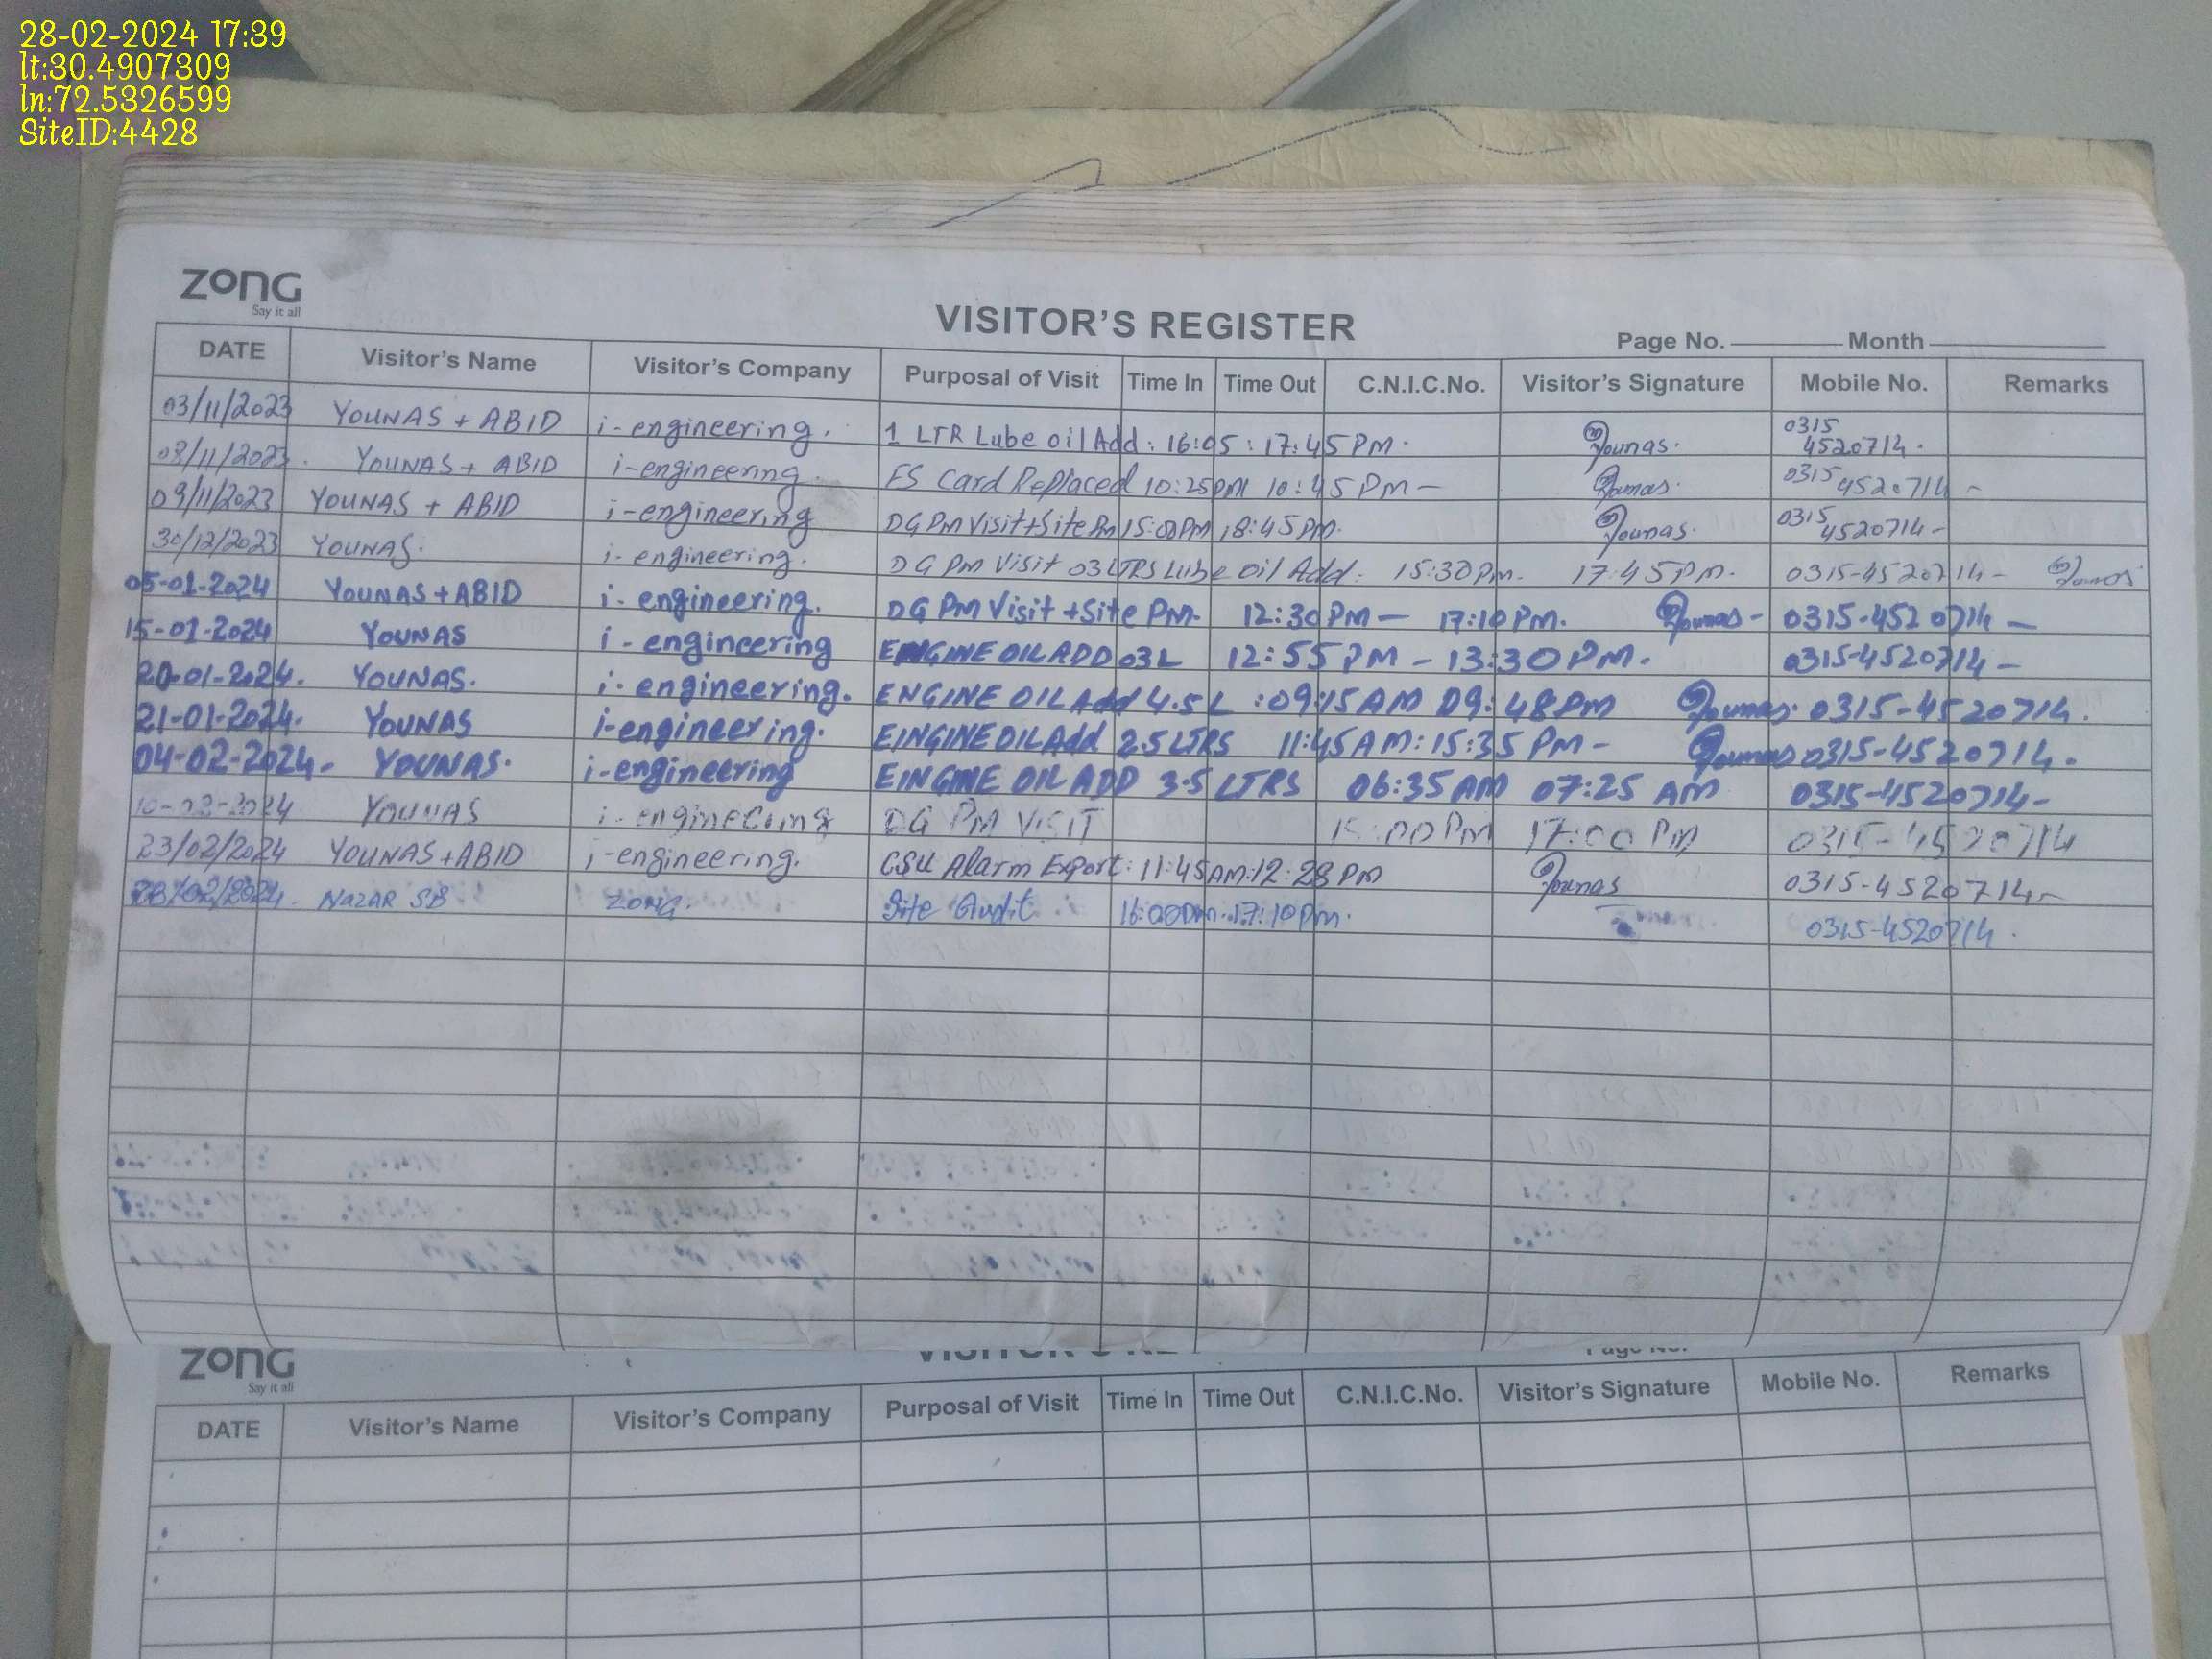 28-02-2024 17:39
lt:30.4907309
ln:72.5326599
SiteID:4428
zong
Say it all
VISITOR'S REGISTER
Page No. Month
DATE Visitor's Name Visitor's Company Purposal of Visit Time In Time Out C.N.I.C.No. Visitor's Signature Mobile No. Remarks
03/11/2023 YOUNAS + ABID i-engineering. 1 LTR Lube oil Add: 16:05 : 17:45 PM. Younas. 0315 4520714.
08/11/2023. YOUNAS + ABID i-engineering. FS Card Replaced 10:25PM 10:45PM- Younas. 0315 4520714 -
09/11/2023 YOUNAS + ABID i-engineering DG PM Visit+Site Pm 15:00PM 18:45PM. Younas. 0315 4520714-
30/12/2023 YOUNAS. i-engineering. DG PM Visit 03 LTRS Lube oil Add: 15:30 Pm. 17:45 PM. 0315-4520714- Younas
05-01-2024 YOUNAS+ABID i-engineering. DG PM Visit +Site PM. 12:30PM - 17:10PM. Younas- 0315-4520714 -
15-01-2024 YOUNAS i-engineering ENGINE OIL ADD 03L 12:55PM - 13:30PM. 0315-4520714-
20-01-2024. YOUNAS. i-engineering. ENGINE OIL Add 4.5 L :09:15AM 09:48PM Younas. 0315-4520714.
21-01-2024. YOUNAS i-engineering. EINGINE OIL Add 2.5 LTRS 11:45AM: 15:35 PM- Younas 0315-4520714.
04-02-2024. YOUNAS. i-engineering EINGINE OIL ADD 3.5 LTRS 06:35AM 07:25 AM 0315-4520714-
10-02-2024 YOUNAS i-engineering DG PM VISIT 15:00PM 17:00PM 0315-4520714
23/02/2024 YOUNAS+ABID i-engineering. CSU Alarm Export: 11:45AM:12:28PM Younas 0315-4520714-
28/02/2024. NAZAR SB ZONG. Site Audit 16:00pm. 17:10pm. 0315-4520714.
zong
Say it all
DATE Visitor's Name Visitor's Company Purposal of Visit Time In Time Out C.N.I.C.No. Visitor's Signature Mobile No. Remarks